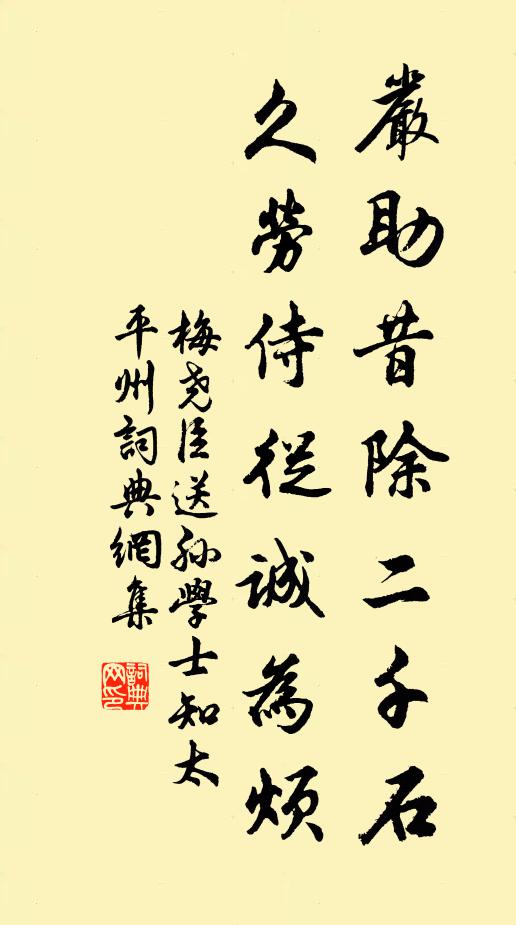 嚴助昔除二千石
久勞侍從誠為煩
梅堯臣送孫學士知太
平州詞典網集
詞典
网印